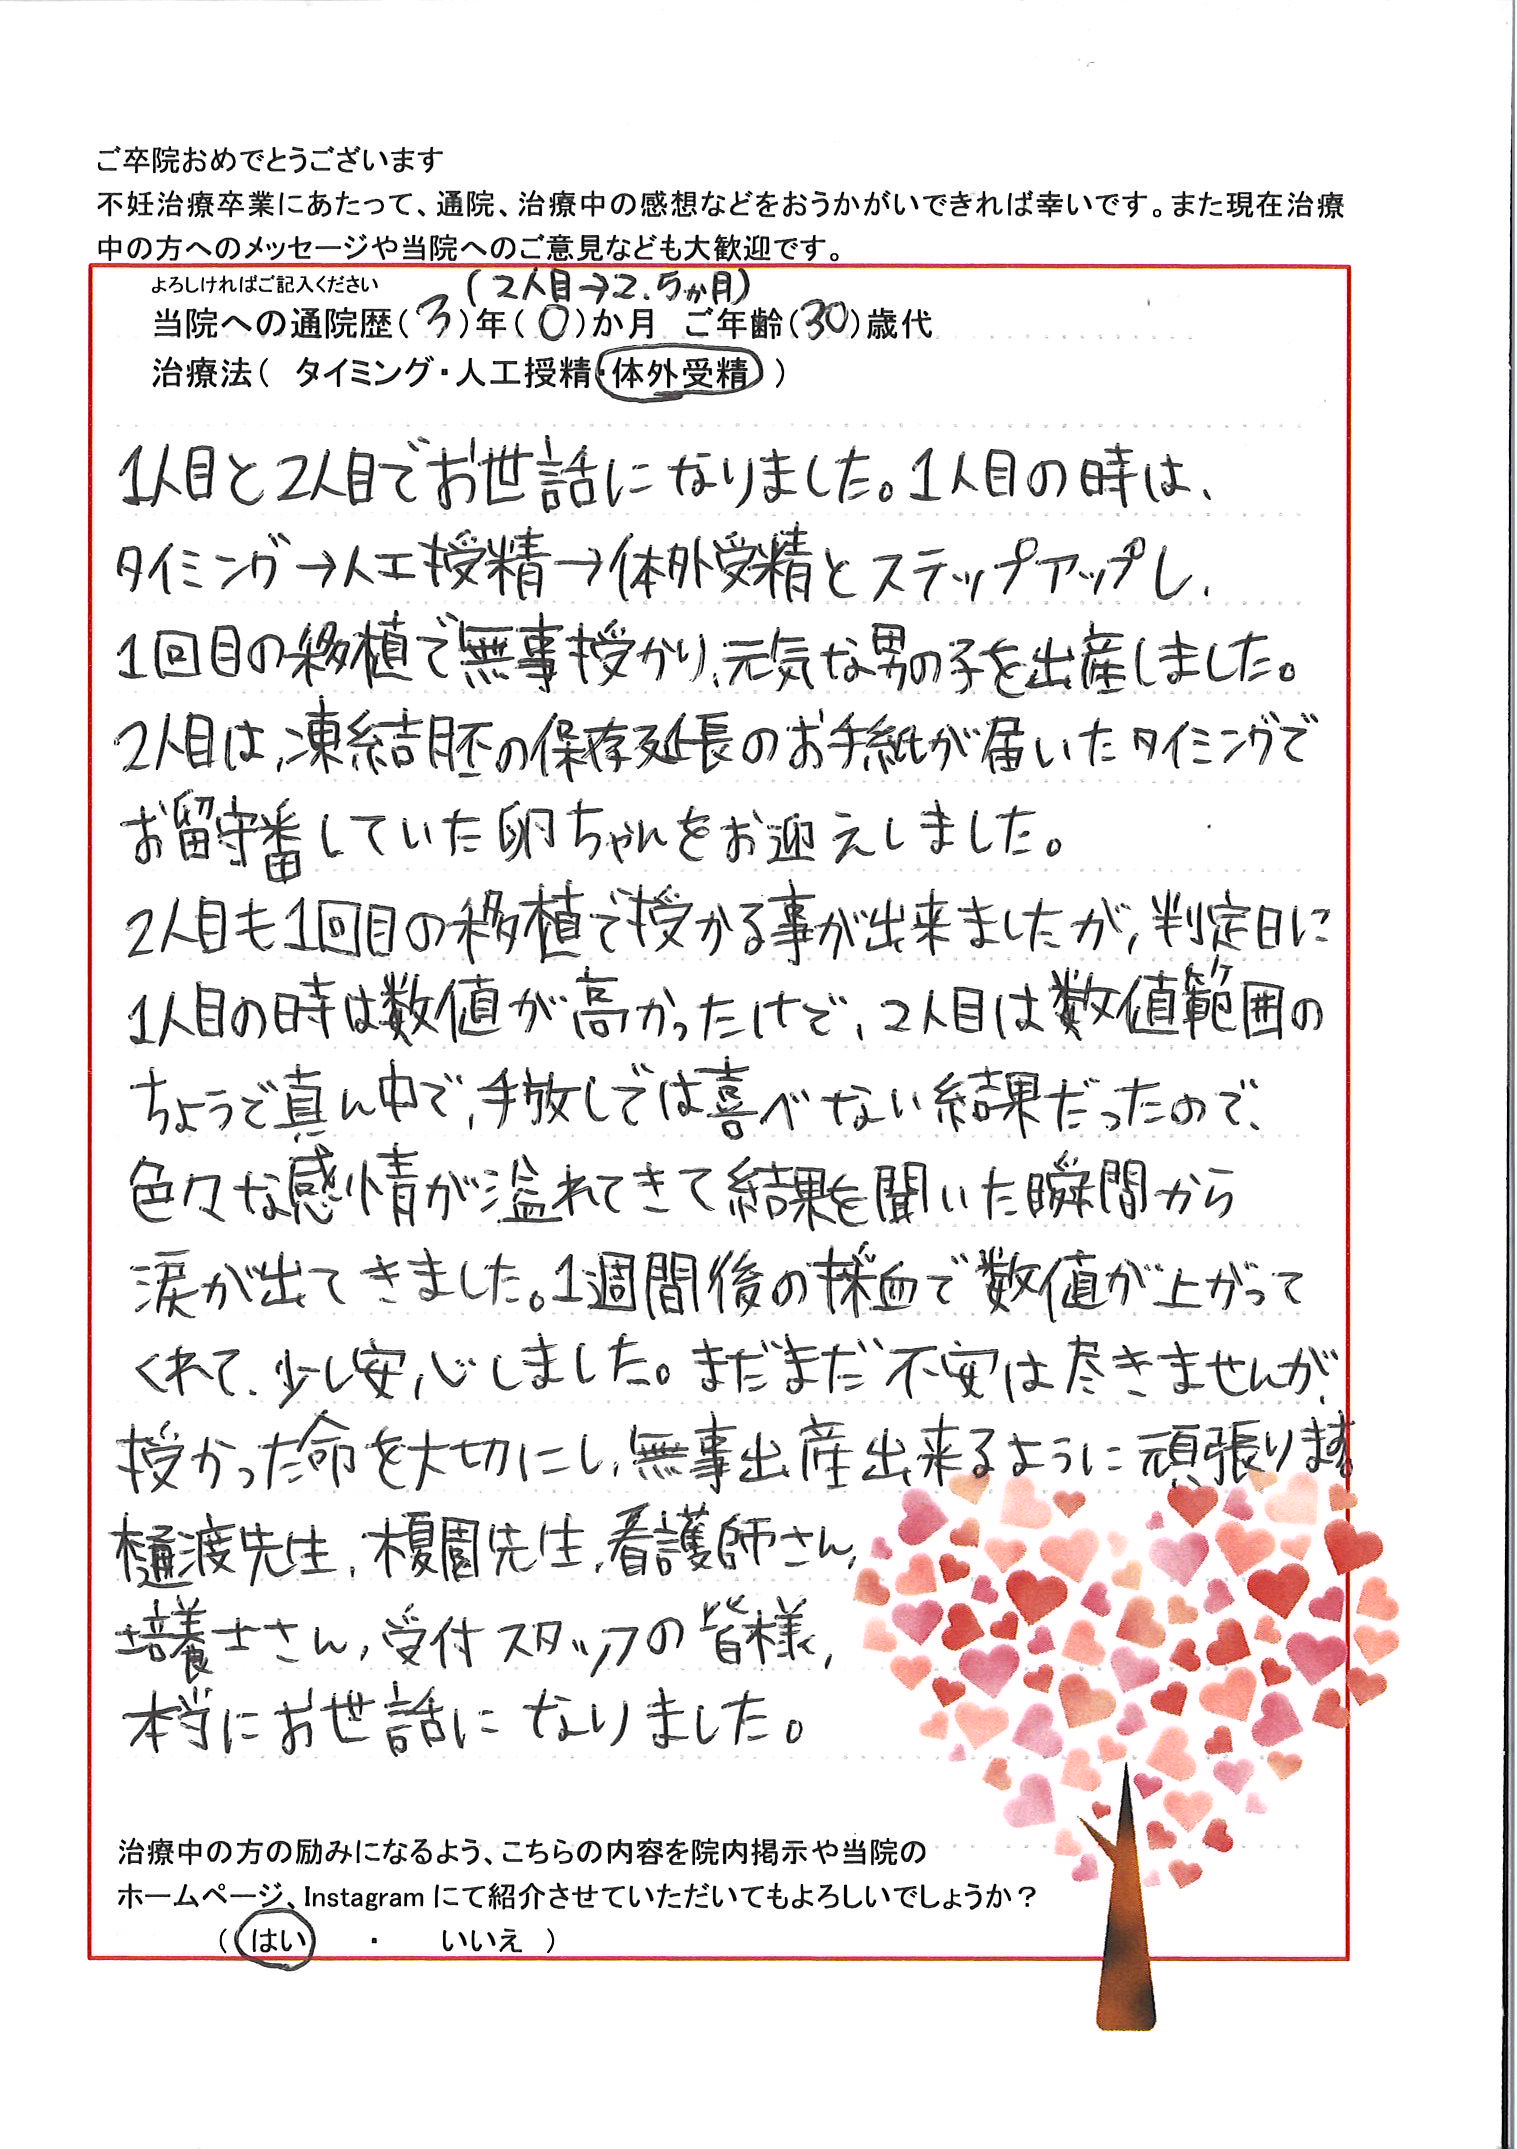 ご卒院おめでとうございます
不妊治療卒業にあたって、通院、治療中の感想などをおうかがいできれば幸いです。また現在治療
中の方へのメッセージや当院へのご意見なども大歓迎です。
よろしければご記入ください
(2人目→2.5か月)
当院への通院歴(3)年(0)か月 ご年齢(30)歳代
治療法( タイミング・人工授精・体外受精 )
1人目と2人目でお世話になりました。1人目の時は、
タイミング→人工授精→体外受精とステップアップし、
1回目の移植で無事授かり、元気な男の子を出産しました。
2人目は、凍結胚の保存延長のお手紙が届いたタイミングで
お留守番していた卵ちゃんをお迎えしました。
2人目も1回目の移植で授かる事が出来ましたが、判定日に
1人目の時は数値が高かったけど、2人目は数値範囲の
ちょうど真ん中で、手放しでは喜べない結果だったので、
色々な感情が溢れてきて結果を聞いた瞬間から
涙が出てきました。1週間後の採血で数値が上がって
くれて、少し安心しました。まだまだ不安は尽きませんが、
授かった命を大切にし、無事出産出来るように頑張ります。
樋渡先生、榎園先生、看護師さん、
培養士さん、受付スタッフの皆様、
本当にお世話になりました。
治療中の方の励みになるよう、こちらの内容を院内掲示や当院の
ホームページ、Instagram にて紹介させていただいてもよろしいでしょうか？
( はい ・ いいえ )